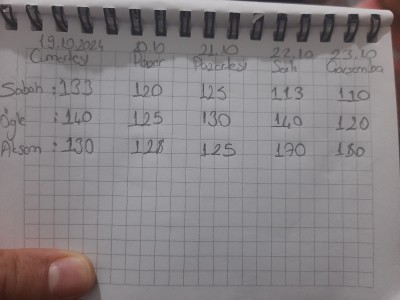 19.10.2024 20.10 21.10 22.10 23.10
Cumartesi Pazar Pazartesi Salı Çarşamba
Sabah : 133 120 125 113 110
Öğle : 140 125 130 140 120
Akşam : 130 128 125 170 180